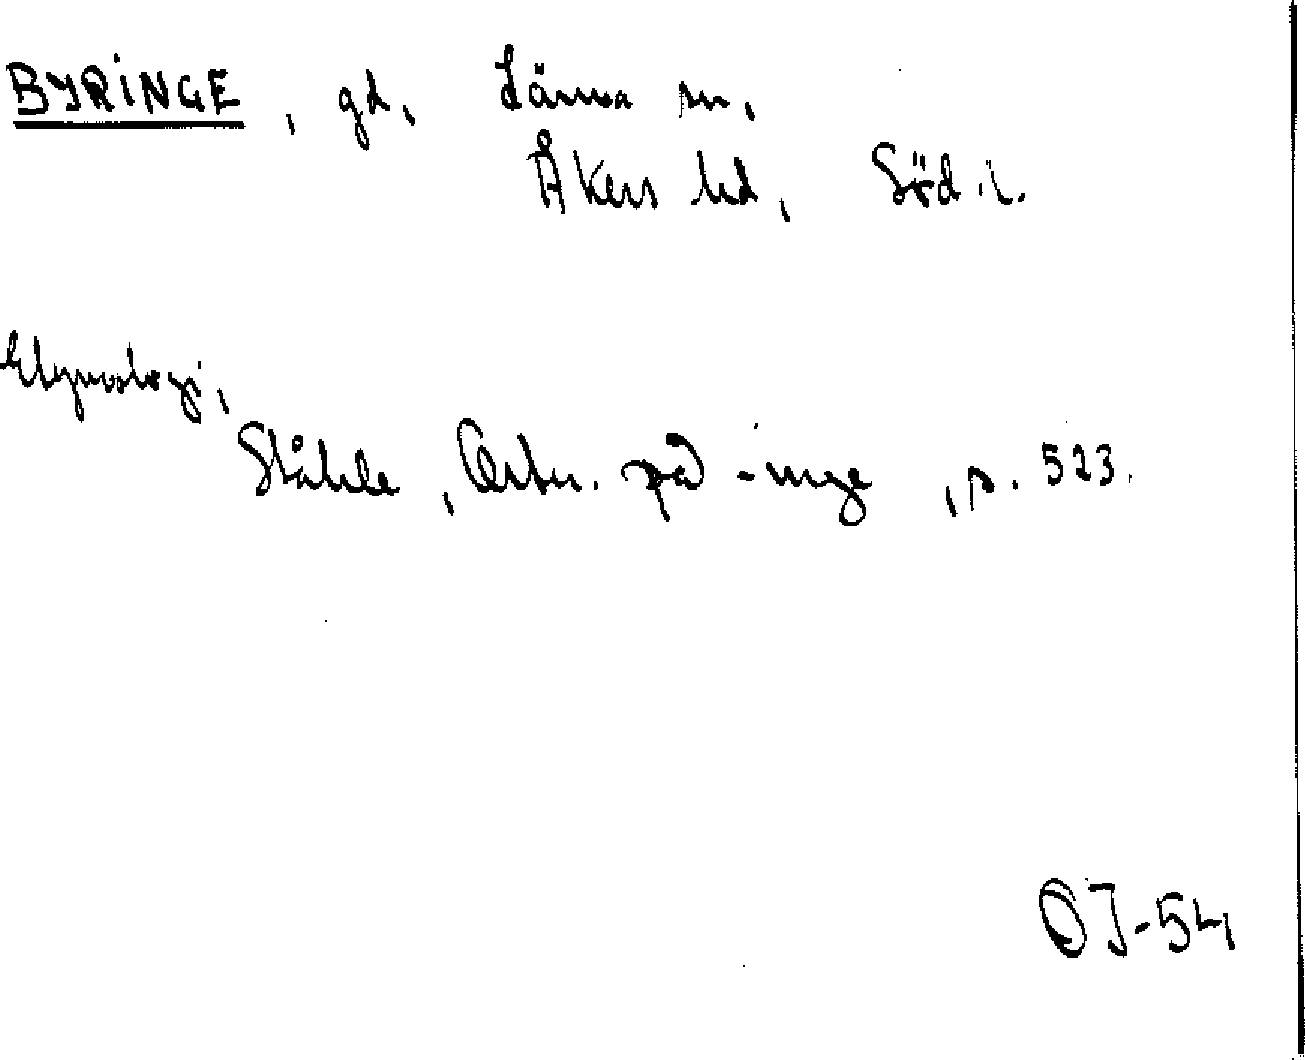 BYRINGE, gd, Länna sn,
Åkers hd, Söd. l.
Etymologi,
Ståhle, Ortn. på -inge, s. 523.
OJ-54